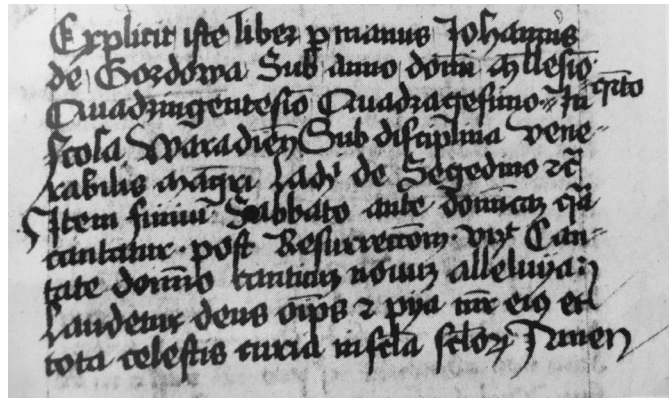 Explicit iste liber p manus Johannis
de Gordowa Sub anno domi Millesio
Quadringentesio Quadragesimo In qrto
scola Waradien Sub disciplina vene-
rabilis Magri Ladi de Segedino etc
Item finiui Sabbato ante domicaz qn
cantatur post Resurrectom vız Can-
tate domino canticuz nouuz alleluya
Laudetur deus oips et pya mr eiꝰ et
tota celestis curia in scla scloꝝ Amen